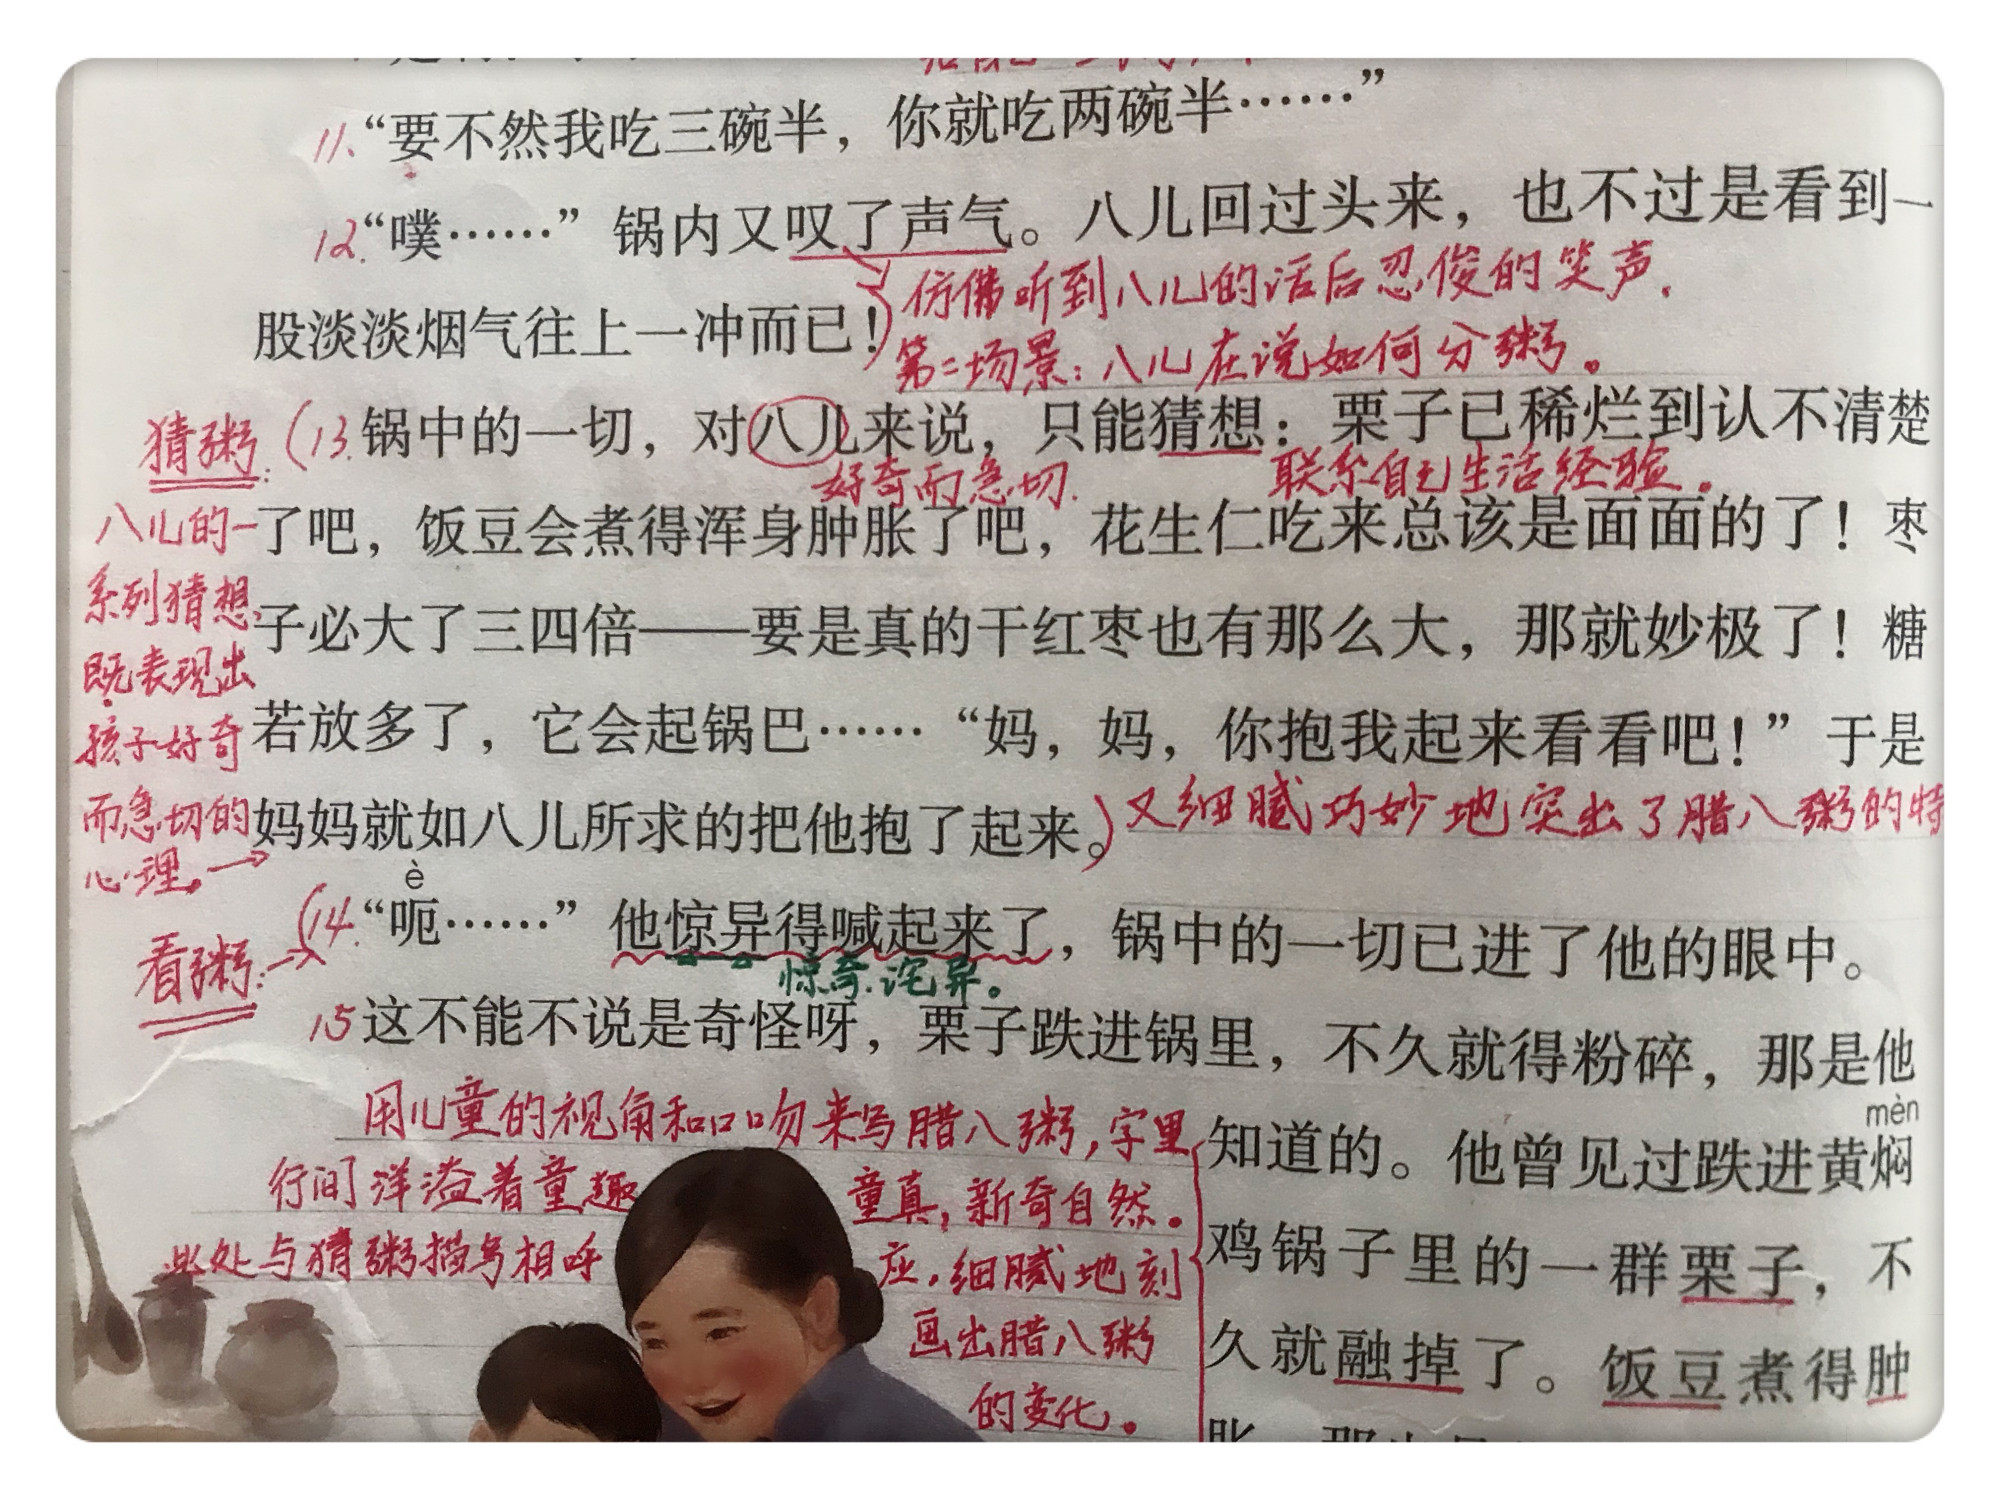 11."要不然我吃三碗半，你就吃两碗半……"
12."噗……"锅内又叹了声气。八儿回过头来，也不过是看到一
仿佛听到八儿的话后忍俊的笑声.
股淡淡烟气往上一冲而已！
第二场景：八儿在说如何分粥。
猜粥：(13.锅中的一切，对八儿来说，只能猜想：栗子已稀烂到认不清楚
好奇而急切. 联系自己生活经验.
八儿的一
了吧，饭豆会煮得浑身肿胀了吧，花生仁吃来总该是面面的了！枣
系列猜想,
子必大了三四倍——要是真的干红枣也有那么大，那就妙极了！糖
既表现出
孩子好奇
若放多了，它会起锅巴……"妈，妈，你抱我起来看看吧！"于是
而急切的
妈妈就如八儿所求的把他抱了起来。)又细腻巧妙地突出了腊八粥的特
心理。→
è
(14."呃……"他惊异得喊起来了，锅中的一切已进了他的眼中。
看粥：→
惊奇.诧异。
15这不能不说是奇怪呀，栗子跌进锅里，不久就得粉碎，那是他
mèn
用儿童的视角和口吻来写腊八粥,字里
行间洋溢着童趣 童真,新奇自然。
此处与猜粥描写相呼 应,细腻地刻
画出腊八粥
的变化。
知道的。他曾见过跌进黄焖
鸡锅子里的一群栗子，不
久就融掉了。饭豆煮得肿